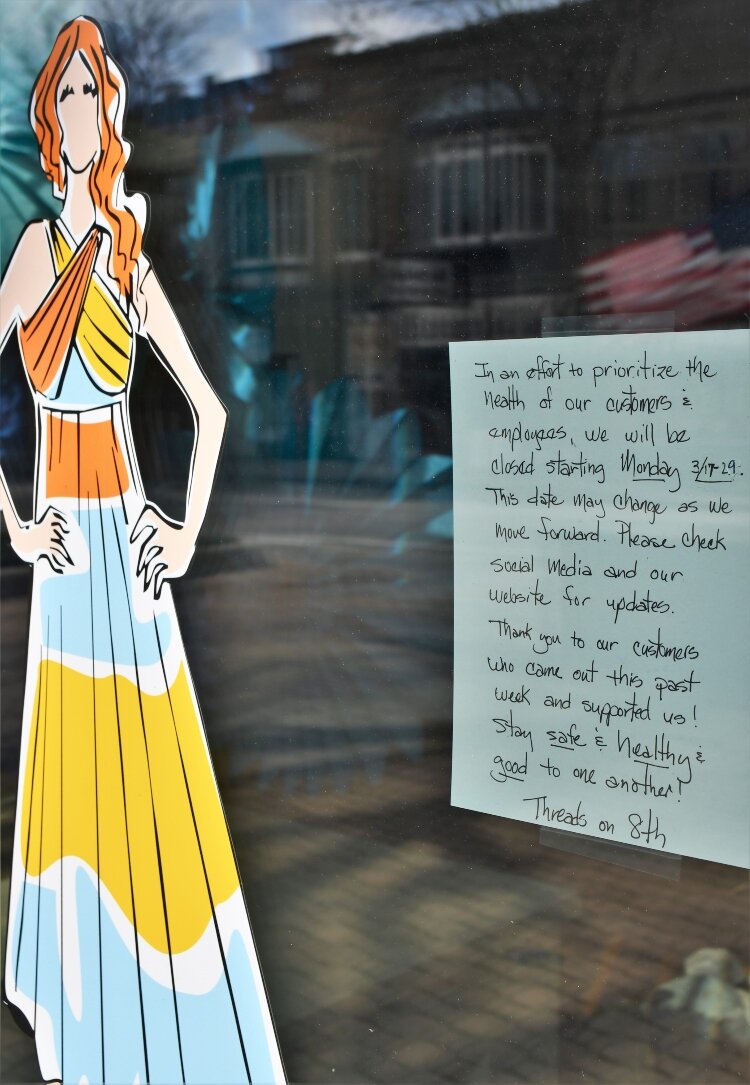 In an effort to prioritize the
health of our customers &
employees, we will be
closed starting Monday 3/17-29.
This date may change as we
move forward. Please check
social media and our
website for updates.
Thank you to our customers
who came out this past
week and supported us!
Stay safe & healthy &
good to one another!
Threads on 8th